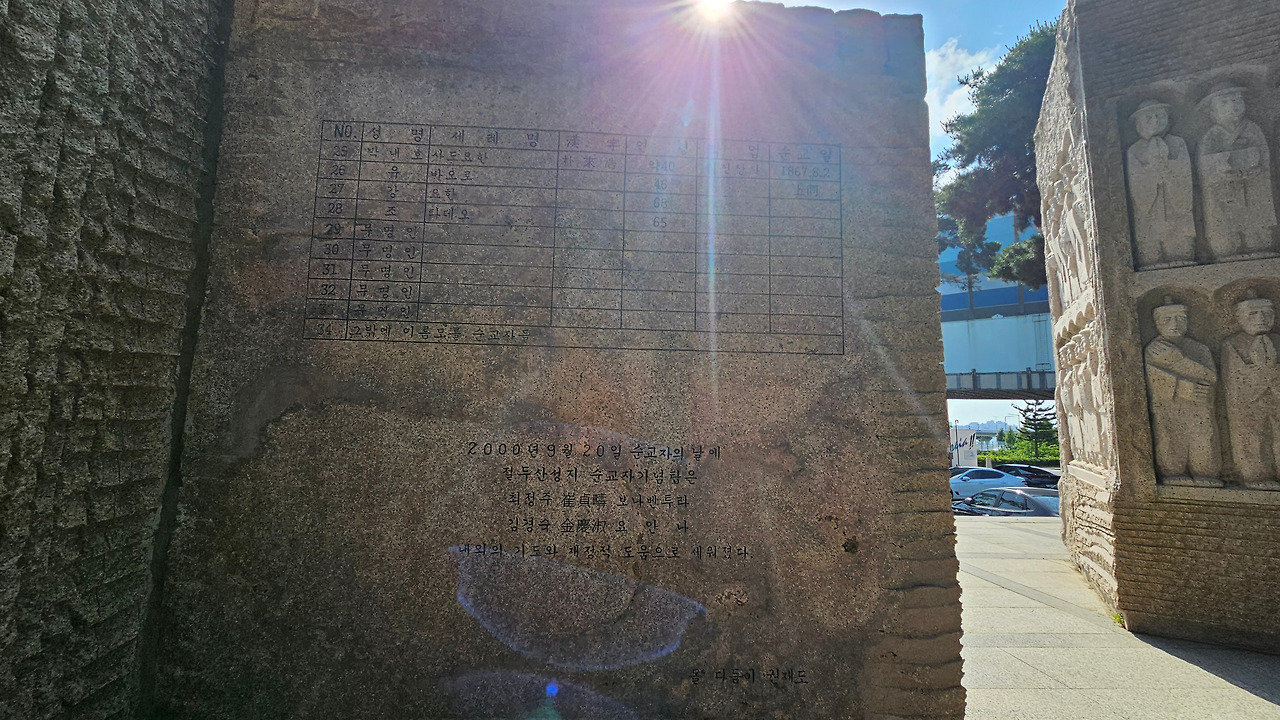 NO. 성 명 세 례 명 漢 字 순교일
25 박내호 사도요한 朴來浩 약40 1867.8.2
26 유 바오로 48
27 강 요한 68
28 조 타데오 65
29 무명인
30 무명인
31 무명인
32 무명인
무명인
34 그밖에 이름모를 순교자들
2000년 9월 20일 순교자의 날에
절두산성지 순교자기념탑은
최정주 보나벤투라
김경숙 金慶淑 요 안 나
내외의 기도와 재정적 도움으로 세워졌다.
다듬이